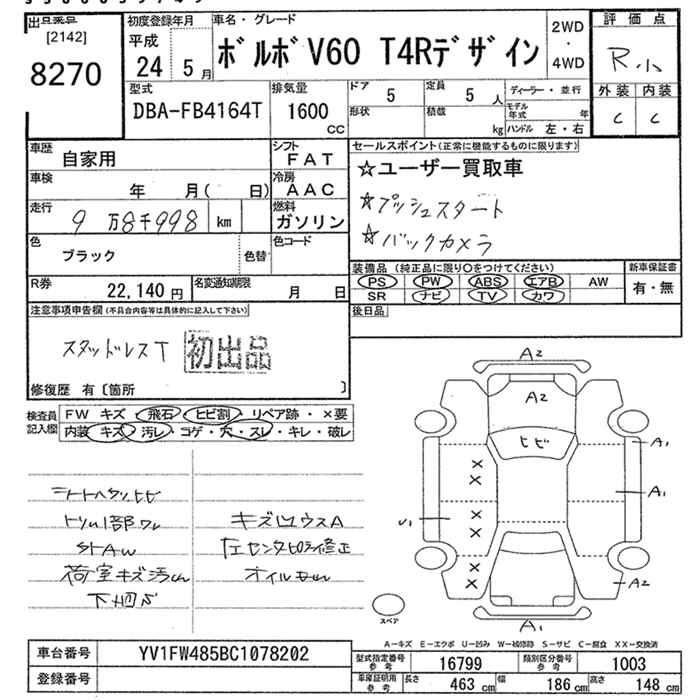 出品番号
[2142]
8270
初度登録年月
平成
24 5月
車名・グレード
ボルボ V60 T4Rデザイン
2WD
・
4WD
評価点
R小
外装 内装
C C
型式
DBA-FB4164T
排気量
1600
CC
ドア
5
形状
定員
5 人
積載
kg
ディーラー・並行
モデル年式 年
ハンドル 左・右
車歴
自家用
シフト
FAT
車検
年 月( 日)
冷房
AAC
走行
9万8千998 km
燃料
ガソリン
色
ブラック
色替
色コード
R券
22,140 円
名変通知期限
月 日
セールスポイント(正常に機能するものに限ります)
☆ユーザー買取車
☆プッシュスタート
☆バックカメラ
装備品 (純正品に限り○をつけてください)
PS PW ABS エアB AW
SR ナビ TV カワ
新車保証書
有・無
後日品
注意事項申告欄(不具合内容等は具体的に記入して下さい)
スタッドレスT
初出品
修復歴 有〔箇所 〕
検査員
記入欄
FW キズ・飛石・ヒビ割・リペア跡・×要
内装キズ・汚レ・コゲ・穴・スレ・キレ・破レ
トリム1部ワレ
荷室キズ汚レ
キズ凹ウスA
左センタピラー修正
オイルモレ
A2
A2
ヒビ
A1
A1
U1
A2
A1
× × × × × ×
スペア
A−キズ E−エクボ U−凹み W−補修跡 S−サビ C−腐食 XX−交換済
車台番号
YV1FW485BC1078202
登録番号
型式指定番号
参考
16799
類別区分番号
参考
1003
車庫証明用
参考
長さ 463 cm
幅 186 cm
高さ 148 cm